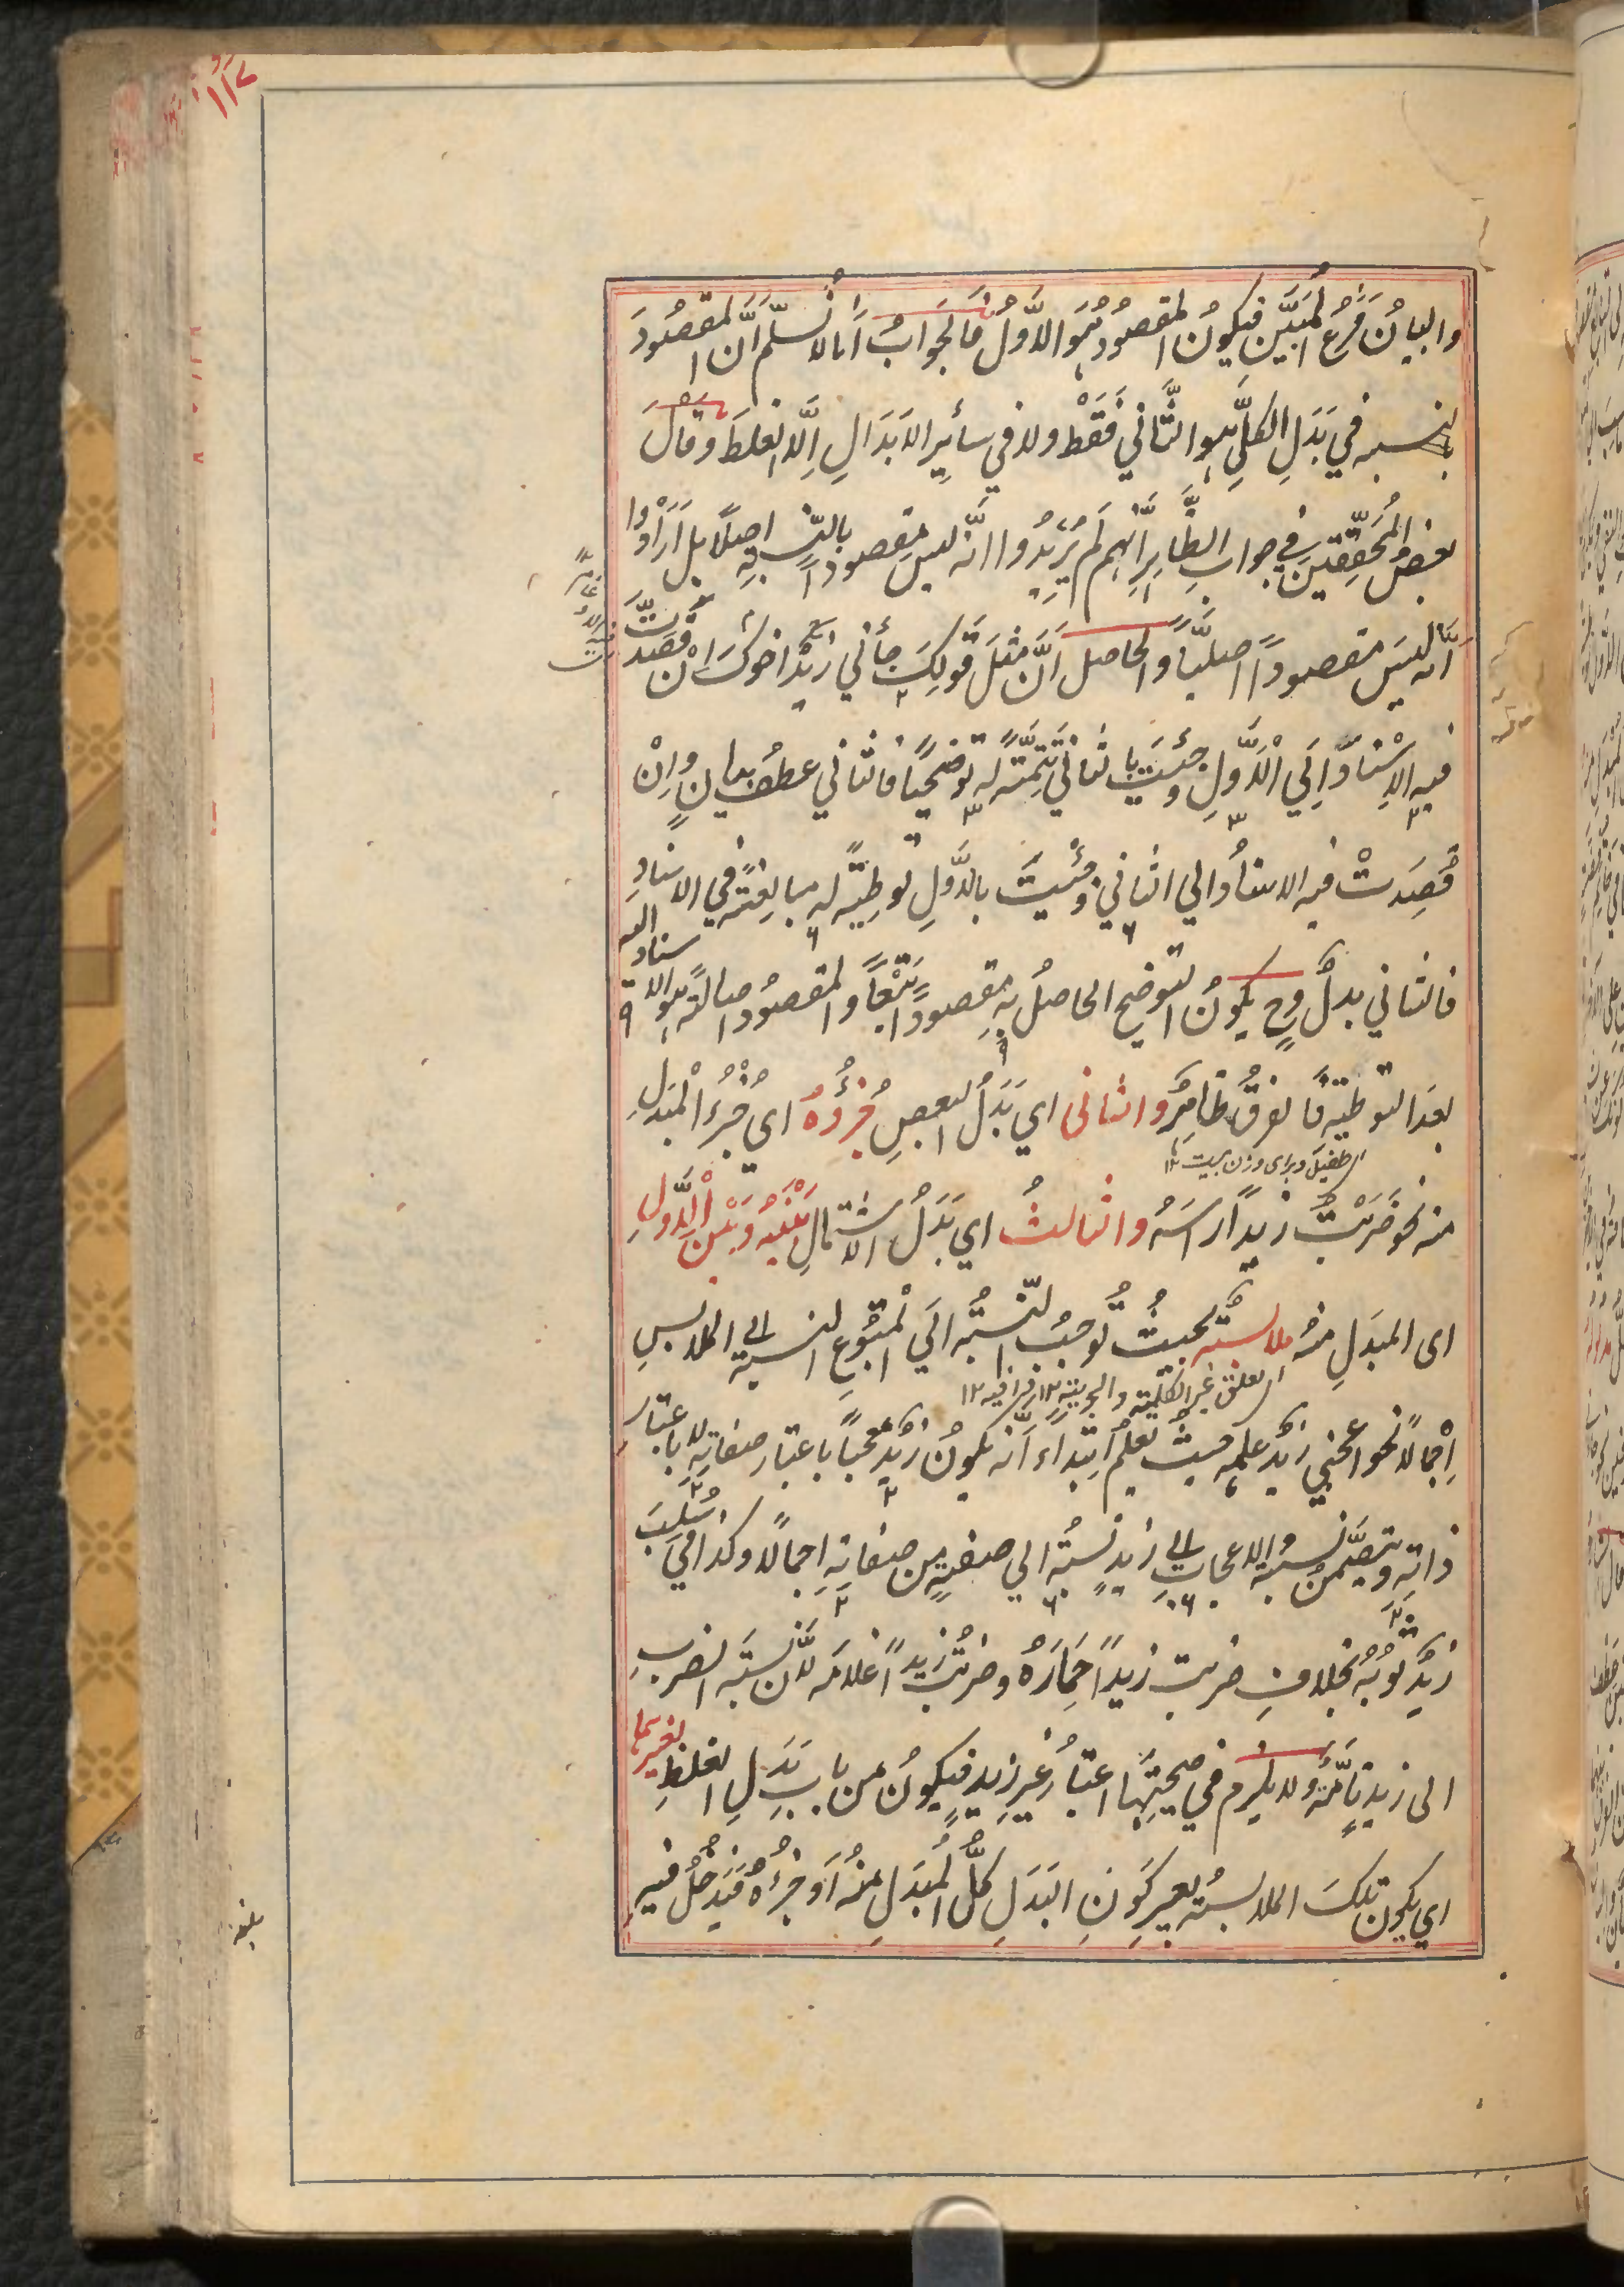 ١١٧
والبيانُ فَرعُ المُبَيَّنِ فيكونُ المقصودُ هُوَ الاَوَّلُ فالجوابُ اَنا لا نُسلّم اَنَّ المقصُودَ
بالنسبه في بَدَلِ الكلِّ هو الثَّاني فَقَطْ ولا في سائِرِ الاَبدَالِ اِلّا الغلطَ وقال
بعضُ المُحَقِّقينَ في جوابِ الظّاهِر اَنَّهم لَم يُرِيدُوا انّه ليس مقصوداً بالنّسبةِ اصلاً بل اَرَادُوا
اَنّه ليسَ مقصوداً اصليّاً والحاصل اَنَّ مثلَ قولِكَ جأني زيدٌ اخوكَ اِنْ قصَدتَّ
فيه الاِسْنَادَ اِلَي الْاَوَّلِ وجئتَ بالثاني تَتِمَّةً له توضيحاً فالثاني عطفُ بيانٍ واِنْ
قَصَدتْ فيه الاسنادَ الي الثاني وجئتَ بالاَوَّلِ توطِئةً له مبالغةً في الاسنادِ
فالثاني بدلٌ وح يكونُ التوضيح الحاصلُ بهِ مقصوداً تَبَعاً والمقصُودُ اصالةً هو الاسناد اليه
بعدَ التوطئة فالفرقُ ظاهرٌ والثاني اي بَدَلُ البعضِ جُزْؤُهُ اي جُزْءُ الْمُبْدَلِ
منه نحو ضَرَبْتُ زيداً رأسَهُ والثالثُ اي بَدَلُ الاشتمالِ بَيْنَهُ وَبَيْنَ الْاَوَّلِ
اى المبدَلِ منهُ ملابسةٌ بحيثُ تُوجبُ النّسبةُ الَي الْمتبُوعِ النسبةَ الي الملابسِ
التعلق بغير الكلّيته والجزئيته ١٢
اِجْمالاً نحو اعجبني زيدٌ علمُه حيث يُعلمُ ابتداءً اَنَّه يكونُ زيدٌ معجباً باعتبارِ صفاتِهِ لا باعتبار
ذاتِهِ ويتضمَّنُ نسبةُ الاعجابِ الي زيدٍ نسبتَهُ الي صفةٍ من صفاتِهِ اجمالاً وكذا في سُلِبَ
زيدٌ ثوبُهُ بخلافِ ضربت زيداً حِمَارَهُ وضربتُ زيداً غلامَه لاَنَّ نسبةَ الضربِ
الى زيدٍ تامّةٌ ولا يلزم في صحّتِها اعتبارُ غيرِ زيدٍ فيكونُ من بابِ بَدَلِ الغلطِ بغيرهما
اي يكون تلكَ الملابسةُ بغير كَونِ البَدَلِ كُلَّ الْمُبدَلِ منهُ اَو جُزءَهُ فيَدخُلُ فيه